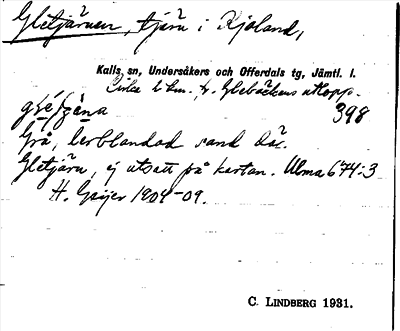 Gletjärnen, tjärn i Kjoland,
Kalls, sn, Undersåkers och Offerdals tg, Jämtl. l.
Cirka 2 km. v. Glebäckens utlopp.
398
Grå, lerblandad sand där.
Gletjärn, ej utsatt på kartan. Ulma 674:3
H. Geijer 1904-09.
C. LINDBERG 1931.